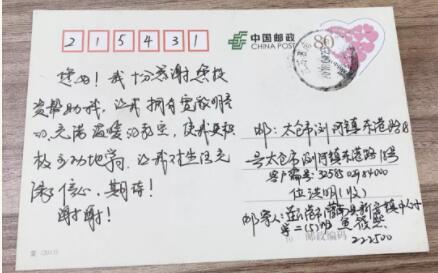 215431
中国邮政
CHINA POST
80
您好！我十分感谢您投
资帮助我，让我拥有宽敞明亮
的、充满温暖的教室，使我更积
极主动地学习，让我对生活充
满了信心，期待！
谢谢！
邮：太仓市浏河镇东港路18
号太仓市浏河镇东港路18号
客户编号：32585029184000
位洪明（收）
邮寄人：连云港市灌南县新安镇中心小
学二(5)班
邮政编码
222500